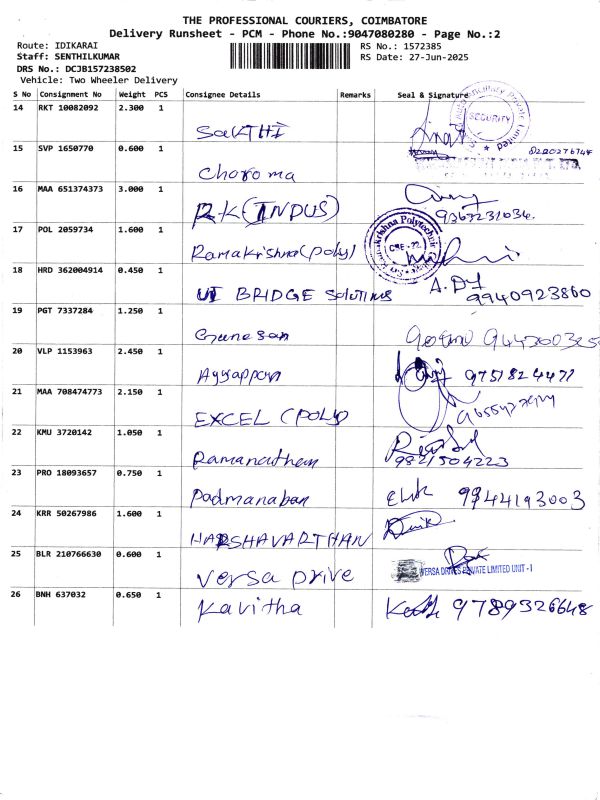 THE PROFESSIONAL COURIERS, COIMBATORE
Delivery Runsheet - PCM - Phone No.:9047080280 - Page No.:2
Route: IDIKARAI
Staff: SENTHILKUMAR
DRS No.: DCJB157238502
Vehicle: Two Wheeler Delivery
RS No.: 1572385
RS Date: 27-Jun-2025
S No Consignment No Weight PCS Consignee Details Remarks Seal & Signature
14 RKT 10082092 2.300 1 SAKTHI
SECURITY
15 SVP 1650770 0.600 1 Choroma
16 MAA 651374373 3.000 1 R.K (INDUS)
17 POL 2059734 1.600 1 Ramakrishna (poly)
18 HRD 362004914 0.450 1 UI BRIDGE SOLUTIONS 9940923860
19 PGT 7337284 1.250 1 Gunesan
20 VLP 1153963 2.450 1 Ayyappan 9751824477
21 MAA 708474773 2.150 1 EXCEL (POLY)
22 KMU 3720142 1.050 1 Ramanathan 9821504223
23 PRO 18093657 0.750 1 Padmanaban 9944193003
24 KRR 50267986 1.600 1 HARSHAVARTHAN
25 BLR 210766630 0.600 1 Versa prive
VERSA DRIVES PRIVATE LIMITED UNIT - I
26 BNH 637032 0.650 1 Kavitha 9789326648